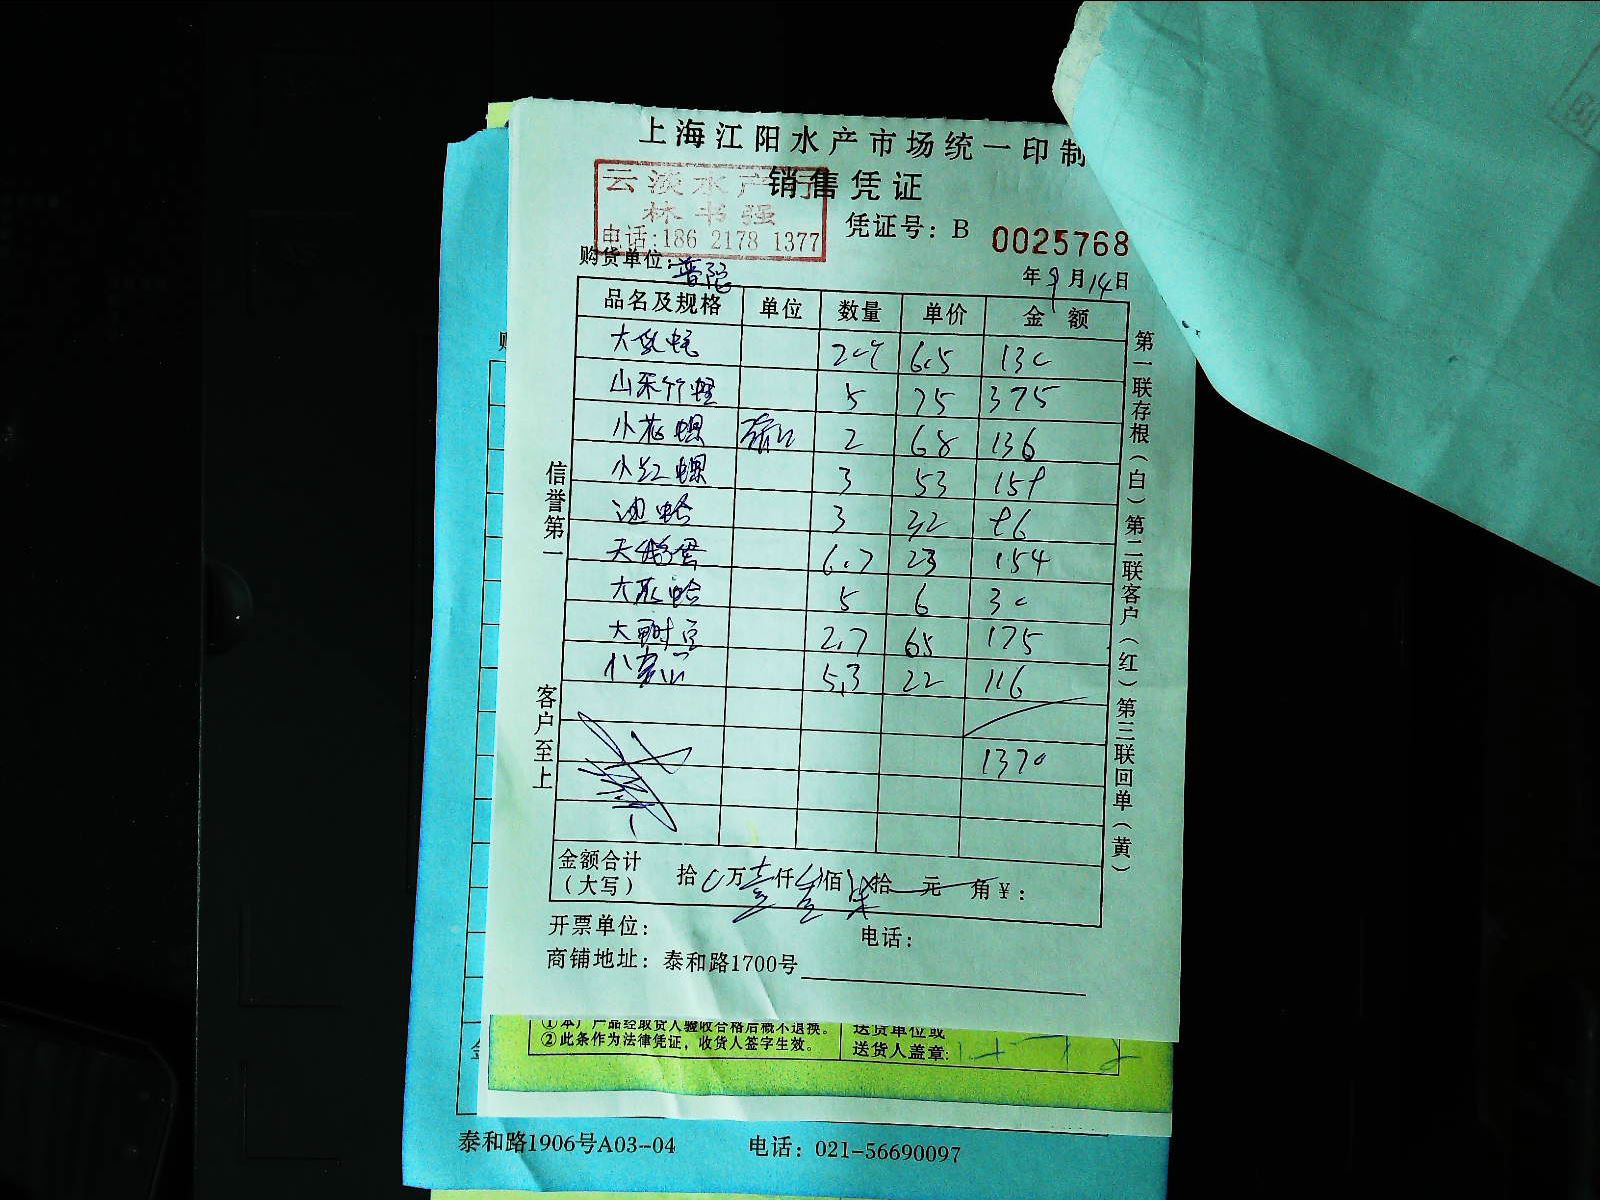 上海江阳水产市场统一印制
销售凭证
云淡水产行
林书强
电话:186 2178 1377
凭证号：B 0025768
购货单位：普陀
年9月14日
品名及规格 单位 数量 单价 金额
6.5 130
山东竹蛏 5 75 375
小花螺 2 68 136
小红螺 3 53 159
油蛤 3 32 96
天鹅蛋 6.7 23 154
5 6 30
2.7 65 175
5.3 22 116
1370
信誉第一
客户至上
第一联存根（白）第二联客户（红）第三联回单（黄）
金额合计
（大写）
拾 万壹仟 佰 拾 元 角￥：
开票单位：
电话：
商铺地址：泰和路1700号
①本厂产品经取货人验收合格后概不退换。
②此条作为法律凭证，收货人签字生效。
送货单位或
送货人盖章:
泰和路1906号A03-04 电话：021-56690097